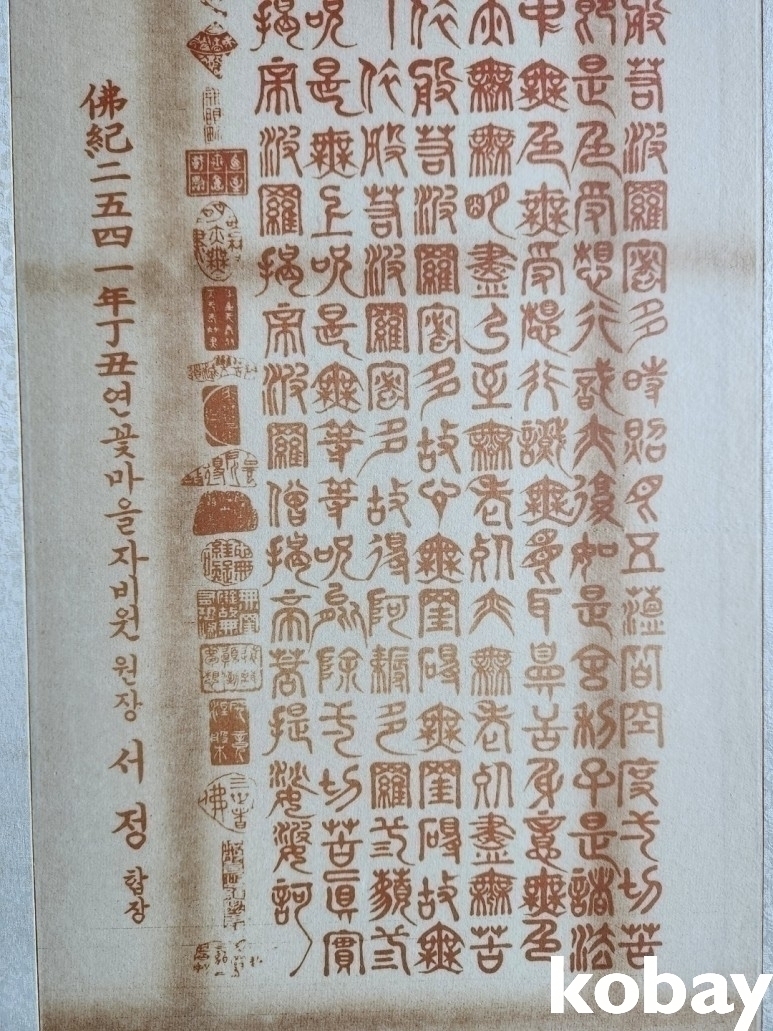 般若波羅蜜多時照見五蘊皆空度一切苦
卽是色受想行識亦復如是舍利子是諸法
中無色無受想行識無眼耳鼻舌身意無色
亦無無明盡乃至無老死亦無老死盡無苦
依般若波羅蜜多故心無罣碍無罣碍故無
依般若波羅蜜多故得阿耨多羅三藐三
呪是無上呪是無等等呪能除一切苦眞實
揭帝波羅揭帝波羅僧揭帝菩提娑婆訶
佛紀二五四一年丁丑연꽃마을자비원 원장 서정 합장
kobay